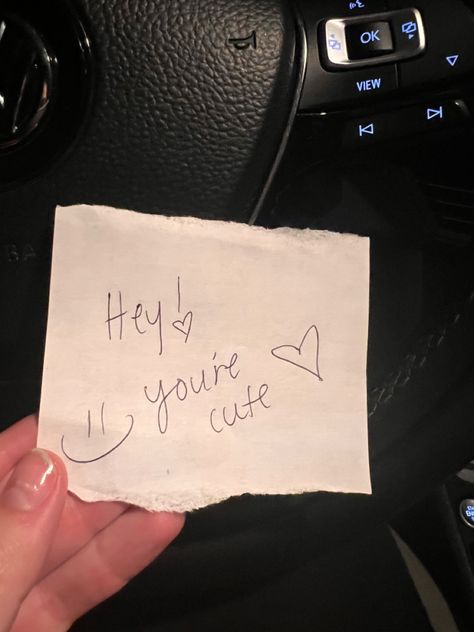 OK
VIEW
Hey!
you're
cute